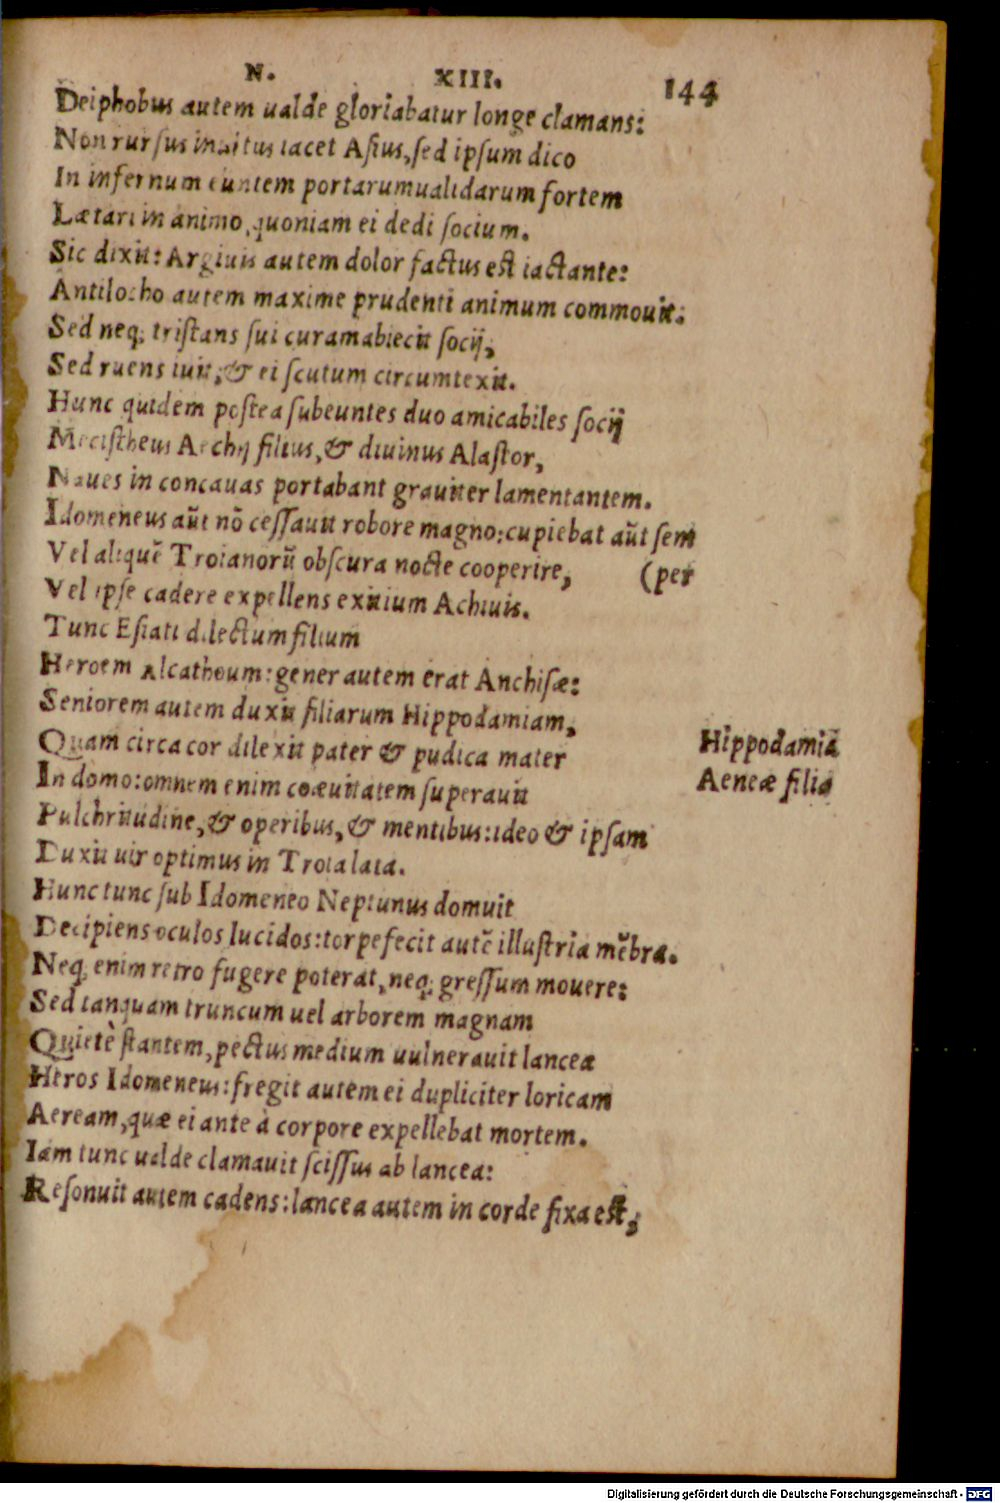 N. XIII. 144
Deiphobus autem ualde gloriabatur longe clamans:
Non rursus inultus iacet Asius, sed ipsum dico
In infernum euntem portarum ualidarum fortem
Lætari in animo, quoniam ei dedi socium.
Sic dixit: Argiuis autem dolor factus est iactante:
Antilocho autem maxime prudenti animum commouit.
Sed neq; tristans sui curam abiecit socij,
Sed ruens iuit, & ei scutum circumtexit.
Hunc quidem postea subeuntes duo amicabiles socij
Mecistheus Aechij filius, & diuinus Alastor,
Naues in concauas portabant grauiter lamentantem.
Idomeneus aūt nō cessauit robore magno: cupiebat aūt sem
Vel aliquē Troianorū obscura nocte cooperire, (per
Vel ipse cadere expellens exitium Achiuis.
Tunc Esiati dilectum filium
Heroem Alcathoum: gener autem erat Anchisæ:
Seniorem autem duxit filiarum Hippodamiam,
Quam circa cor dilexit pater & pudica mater
Hippodamia
In domo: omnem enim coæuitatem superauit
Aeneæ filia
Pulchritudine, & operibus, & mentibus: ideo & ipsam
Duxit uir optimus in Troia lata.
Hunc tunc sub Idomeneo Neptunus domuit
Decipiens oculos lucidos: torpefecit autē illustria mēbra.
Neq; enim retro fugere poterat, neq; gressum mouere:
Sed tanquam truncum uel arborem magnam
Quietè stantem, pectus medium uulnerauit lancea
Heros Idomeneus: fregit autem ei dupliciter loricam
Aeream, quæ ei ante à corpore expellebat mortem.
Iam tunc ualde clamauit scissus ab lancea:
Resonuit autem cadens: lancea autem in corde fixa est,
Digitalisierung gefördert durch die Deutsche Forschungsgemeinschaft - DFG